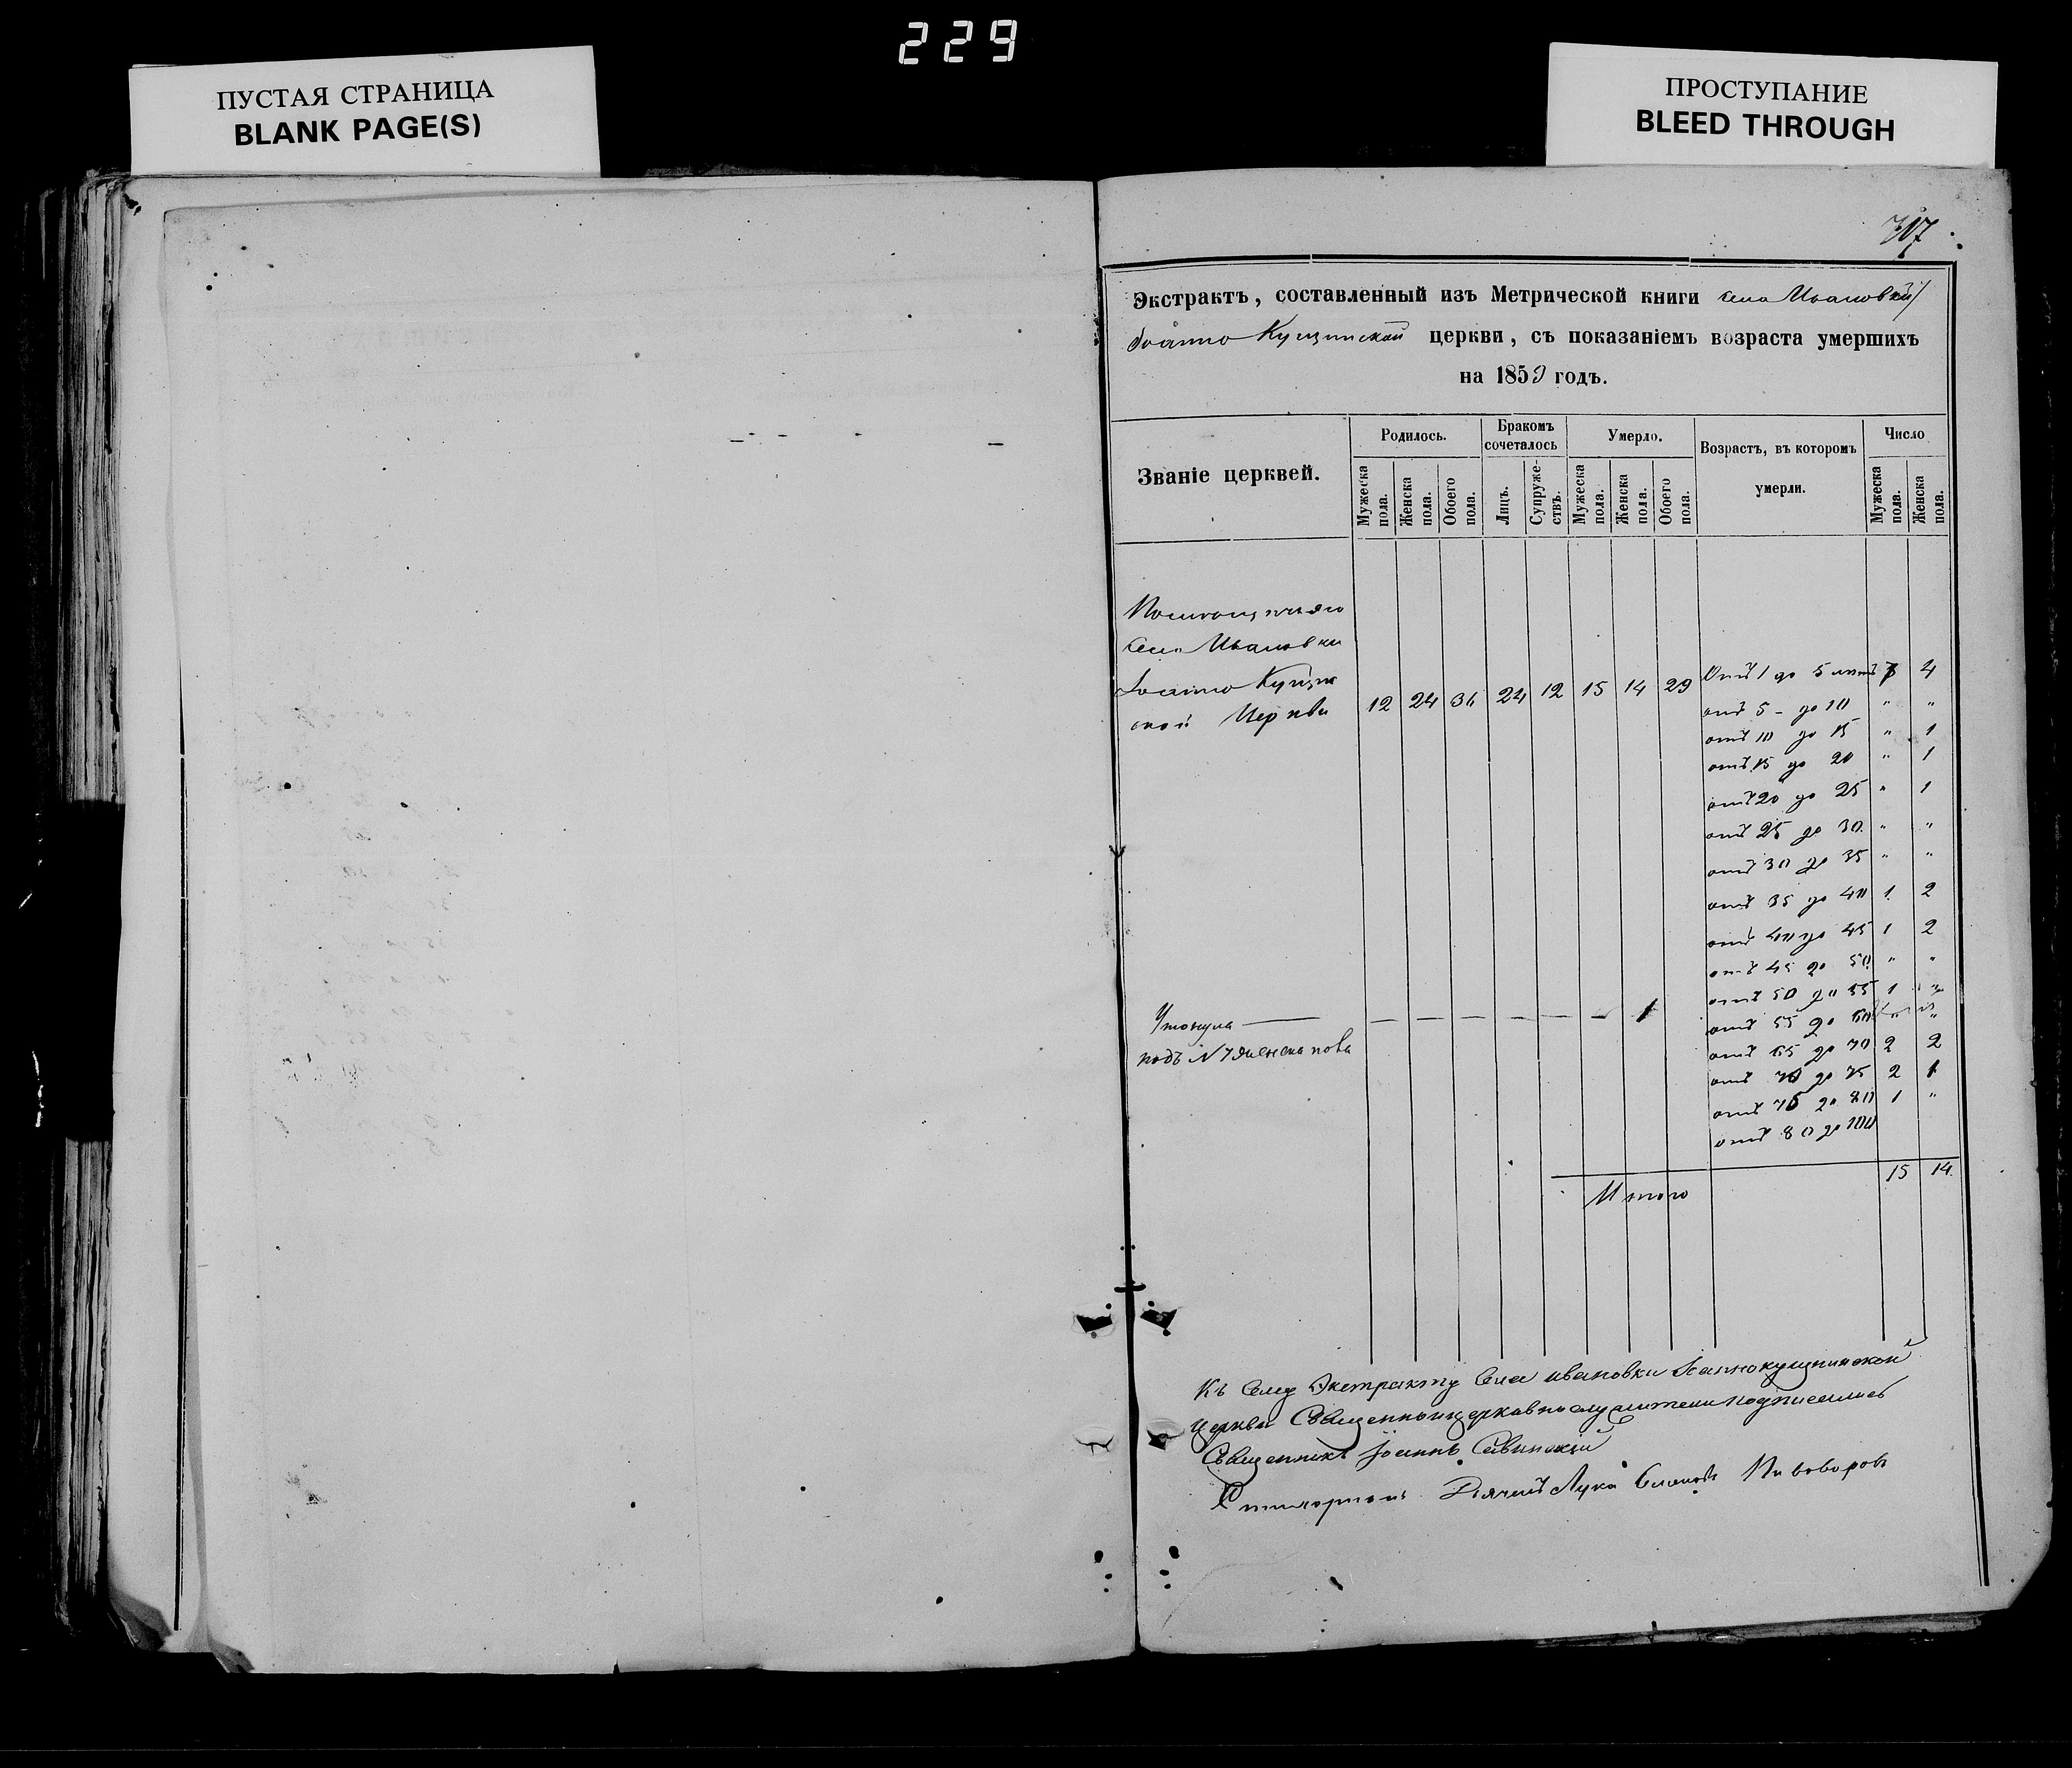 229
ПУСТАЯ СТРАНИЦА
BLANK PAGE(S)
ПРОСТУПАНИЕ
BLEED THROUGH
Экстрактъ, составленный изъ Метрической книги села Ивановки
Іоанно Кущинской церкви, съ показаніемъ возраста умершихъ
на 1859 годъ.
Званіе церквей.
Родилось.
Бракомъ сочеталось
Умерло.
Возрастъ, въ которомъ умерли.
Число
Мужеска пола.
Женска пола.
Обоего пола.
Лицъ.
Супружествъ.
Мужеска пола.
Женска пола.
Обоего пола.
Мужеска пола.
Женска пола.
села Ивановки
Іоанно Кущин
ской Церкви 12 24 36 24 12 15 14 29
отъ 1 до 5 лѣтъ 7 4
отъ 5 - до 10 " "
отъ 10 до 15 " 1
отъ 15 до 20 " 1
отъ 20 до 25 " 1
отъ 25 до 30 " "
отъ 30 до 35 " "
отъ 35 до 40 1 2
отъ 40 до 45 1 2
отъ 45 до 50 " "
отъ 50 до 55 1 "
отъ 55 до 60 " "
отъ 65 до 70 2 2
отъ 70 до 75 2 1
отъ 75 до 80 1 "
отъ 80 до 100
Утонула — — — — — — — 1
подъ N 7 женска пола
Итого 15 14
Къ сему Экстракту села Ивановки Іоаннокущинской
Церкви Священноицерковнослужители подписались
Священникъ Іоаннъ Савинскій
Дьячекъ Лука Пивоваровъ